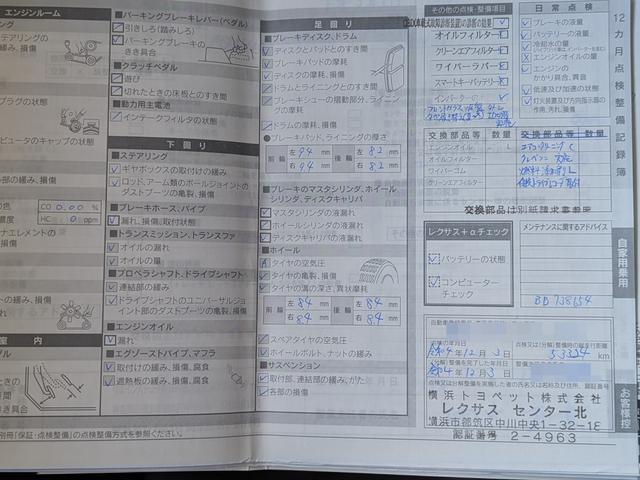 エンジンルーム
の緩み、損傷
プラグの状態
ピュータのキャップの状態
部の緩み、損傷
の色
CO 0.00 %
HC 0 ppm
ナエレメントの
み、損傷
別冊「保証・点検整備」の点検整備方式を参照ください。
パーキングブレーキレバー(ペダル)
引きしろ(踏みしろ)
パーキングブレーキの
きき具合
クラッチペダル
遊び
切れたときの床板とのすき間
動力用主電池
インテークフィルタの状態
下回り
ステアリング
ギヤボックスの取付けの緩み
ロッド、アーム類のボールジョイントの
ダストブーツの亀裂、損傷
ブレーキホース、パイプ
漏れ、損傷、取付状態
トランスミッション、トランスファ
オイルの漏れ
オイルの量
プロペラシャフト、ドライブシャフト
連結部の緩み
ドライブシャフトのユニバーサルジョ
イント部のダストブーツの亀裂、損傷
エンジンオイル
漏れ
エグゾーストパイプ、マフラ
取付けの緩み、損傷、腐食
遮熱板の緩み、損傷、腐食
足回り
ブレーキディスク、ドラム
ディスクとパッドとのすき間
ブレーキパッドの摩耗
ディスクの摩耗、損傷
ドラムとライニングとのすき間
ブレーキシューの摺動部分、ライニン
グの摩耗
ドラムの摩耗、損傷
ブレーキパッド、ライニングの厚さ
前輪 左 9.4 mm 後輪 左 8.2 mm
右 9.4 mm 右 8.2 mm
ブレーキのマスタシリンダ、ホイール
シリンダ、ディスクキャリパ
マスタシリンダの液漏れ
ホイールシリンダの液漏れ
ディスクキャリパの液漏れ
ホイール
タイヤの空気圧
タイヤの亀裂、損傷
タイヤの溝の深さ、異状摩耗
前輪 左 8.4 mm 後輪 左 8.4 mm
右 8.4 mm 右 8.4 mm
スペアタイヤの空気圧
ホイールボルト、ナットの緩み
サスペンション
取付部、連結部の緩み、がた
各部の損傷
その他の点検・整備項目
オイルフィルター
クリーンエアフィルター
ワイパーラバー
スマートキーバッテリー
インバーター
交換部品等 数量
エンジンオイル L
オイルフィルター
ワイパーゴム
クリーンエアフィルター
日常点検
ブレーキの液量
バッテリーの液量
冷却水の量
エンジンオイルの量
エンジンの
かかり具合、異音
低速及び加速の状態
灯火装置及び方向指示器の
作用、汚れ、損傷
交換部品等 数量
交換部品は別紙請求書参照
レクサス+αチェック
バッテリーの状態
コンピューター
チェック
メンテナンスに関するアドバイス
BB738654
令和4年12月3日
53324 km
令和4年12月3日
横浜トヨペット株式会社
レクサス センター北
横浜市都筑区中川中央1-32-18
認証番号 2-4963
12カ月点検整備記録簿
自家用乗用
お客様控